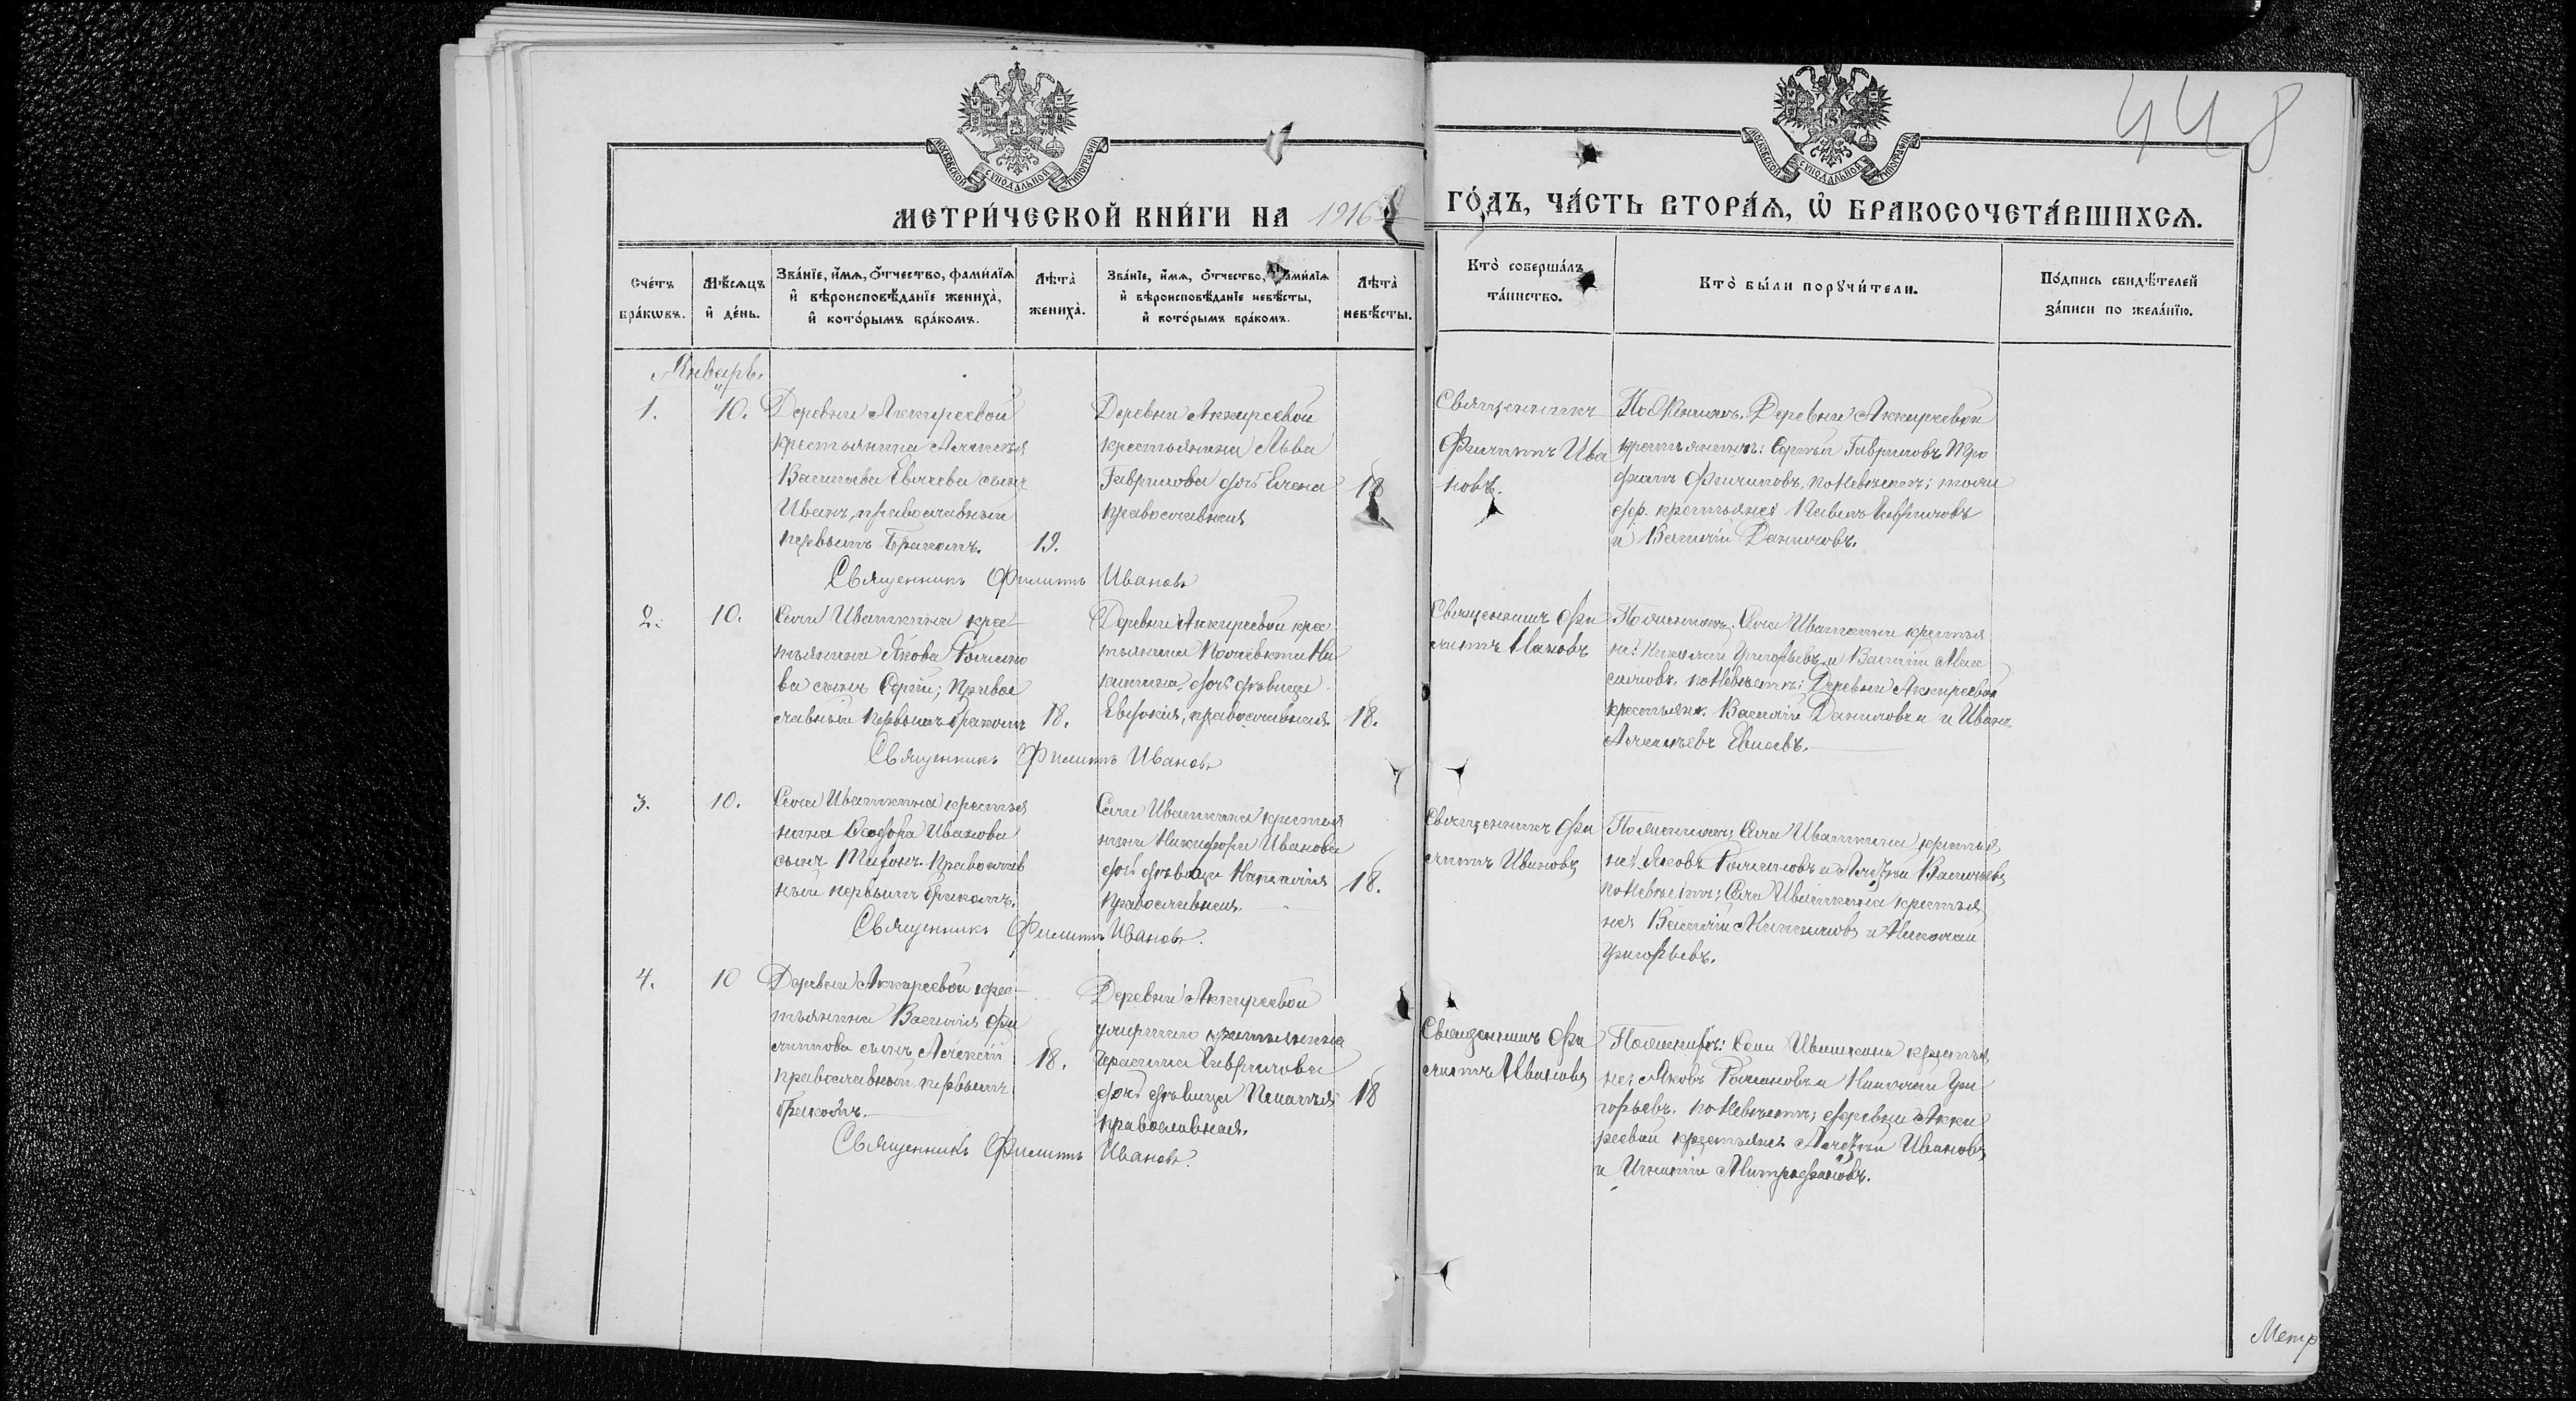 448
МОСКОВСКОЙ СѴНОДАЛЬНОЙ ТИПОГРАФІИ
МОСКОВСКОЙ СѴНОДАЛЬНОЙ ТИПОГРАФІИ
МЕТРИ́ЧЕСКОЙ КНИ́ГИ НА 1916 ГО́ДЪ, ЧА́СТЬ ВТОРА́Ѧ, Ѽ БРАКОСОЧЕТА́ВШИХСѦ.
Сче́тъ бра́кѡвъ.
Мѣ́сѧцъ и҆ де́нь.
Зва́нїе, и҆́мѧ, ѻ҆́тчество, фами́лїѧ
и҆ вѣроисповѣ́данїе жениха̀,
и҆ кото́рымъ бра́комъ.
Лѣта̀ жениха̀.
Зва́нїе, и҆́мѧ, ѻ҆́тчество, фами́лїѧ
и҆ вѣроисповѣ́данїе невѣ́сты,
и҆ кото́рымъ бра́комъ.
Лѣта̀ невѣ́сты.
Кто̀ соверша́лъ
та́инство.
Кто̀ бы́ли порꙋчи́тели.
По́дпись свидѣ́телей
за́писи по жела́нїю.
Январь.
1.
10.
Деревни Аккиреевой
крестьянина Алексѣя
Васильева Евсеева сынъ
Иванъ, православный
первымъ бракомъ.
19.
Деревни Аккиреевой
крестьянина Льва
Гаврилова дочь Елена
православная
18
Священникъ
Филиппъ Ива
новъ.
По женихѣ: Деревни Аккиреевой
крестьянинъ: Сергѣй Гавриловъ Тро
фимъ Филиповъ, по невѣстѣ: тойже
дер. крестьяне Павелъ Гавриловъ
и Василій Даниловъ.
Священникъ Филиппъ Ивановъ
2.
10.
Села Ивашкина крес-
тьянина Якова Романо
ва сынъ Сергій; Правос
лавный первымъ бракомъ
18.
Деревни Аккиреевой крес
тьянина Ни
китина дочь дѣвица
Евдокія, православная.
18.
Священникъ Фи
липпъ Ивановъ
По женихѣ: Села Ивашкина крестья
не: Николай Григорьевъ и Василій Мак
симовъ. по невѣстѣ: Деревни Аккиреевой
крестьяне. Василій Даниловъ и Иванъ
Алексѣевъ Евсеевъ.
Священникъ Филиппъ Ивановъ
3.
10.
Села Ивашкина крестья
нина Ѳеодора Иванова
сынъ Тихонъ. Православ
ный первымъ бракомъ.
Села Ивашкина крестья
нина Никифора Иванова
дочь дѣвица Наталія
православная.
18.
Священникъ Фи
липпъ Ивановъ
По женихѣ; Села Ивашкина крестья
не: Яковъ Романовъ и Алексѣй Васильевъ
по невѣстѣ; Села Ивашкина крестья
не: Василій и Николай
Григорьевъ.
Священникъ Филиппъ Ивановъ.
4.
10
Деревни Аккиреевой крес-
тьянина Василія Фи
липпова сынъ Алексѣй
православный первымъ
бракомъ.
18.
Деревни Аккиреевой
умершаго крестьянина
Герасима Гаврилова
дочь дѣвица Пелагѣя
православная.
18
Священникъ Фи
липпъ Ивановъ
По женихѣ: Села Ивашкина крестья
не: Яковъ Романовъ и Николай Гри
горьевъ. по невѣстѣ; деревни Акки
реевой крестьяне Алексѣй Ивановъ
и Игнатій Митрофановъ.
Священникъ Филиппъ Ивановъ.
Метр